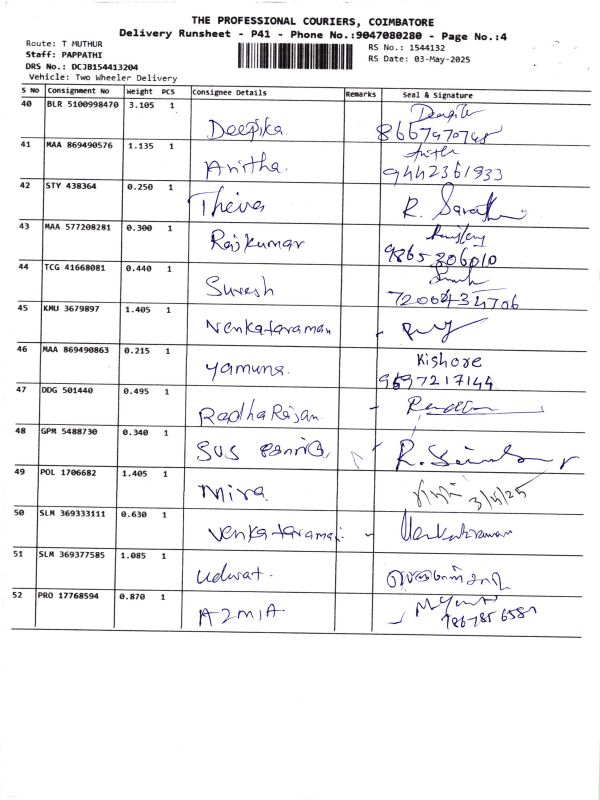 THE PROFESSIONAL COURIERS, COIMBATORE
Delivery Runsheet - P41 - Phone No.:9047080280 - Page No.:4
Route: T MUTHUR
RS No.: 1544132
Staff: PAPPATHI
RS Date: 03-May-2025
DRS No.: DCJB154413204
Vehicle: Two Wheeler Delivery
S No Consignment No Weight PCS Consignee Details Remarks Seal & Signature
40 BLR 5100998470 3.105 1
Deepika
8667970748
41 MAA 869490576 1.135 1
Anitha
9442361933
42 STY 438364 0.250 1
Theiva R. Sarath
43 MAA 577208281 0.300 1
Rajkumar
9865306010
44 TCG 41668081 0.440 1
Suresh
45 KMU 3679897 1.405 1
Venkataraman
46 MAA 869490863 0.215 1
Kishore
Yamuna
9597217144
47 DDG 501440 0.495 1
RadhaRajan
48 GPM 5488730 0.340 1
SVS
49 POL 1706682 1.405 1
Mira
50 SLM 369333111 0.630 1
Venkataraman Venkataraman
51 SLM 369377585 1.085 1
Udwat
52 PRO 17768594 0.870 1
AZMIA